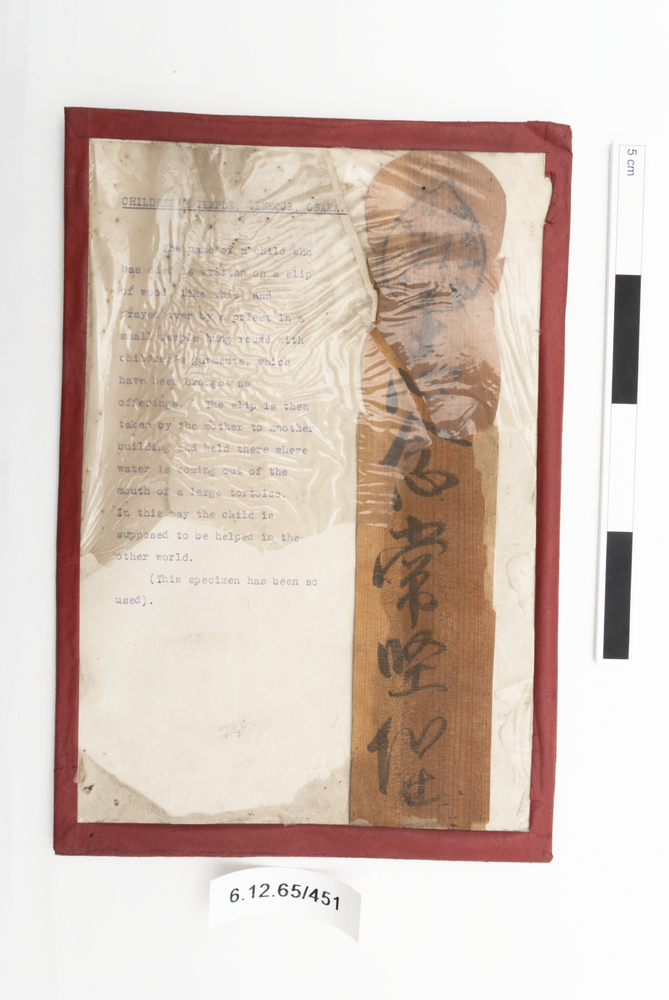 CHILDREN'S TEMPLE, TENNOJI, OSAKA.
The name of a child who
has died is written on a slip
of wood, like this, and
prayed over by a priest in a
small temple hung round with
children's garments, which
have been brought as
offerings. The slip is then
taken by the mother to another
building and held there where
water is coming out of the
mouth of a large tortoise.
In this way the child is
supposed to be helped in the
other world.
(This specimen has been so
used).
常
堅
5 cm
6.12.65/451